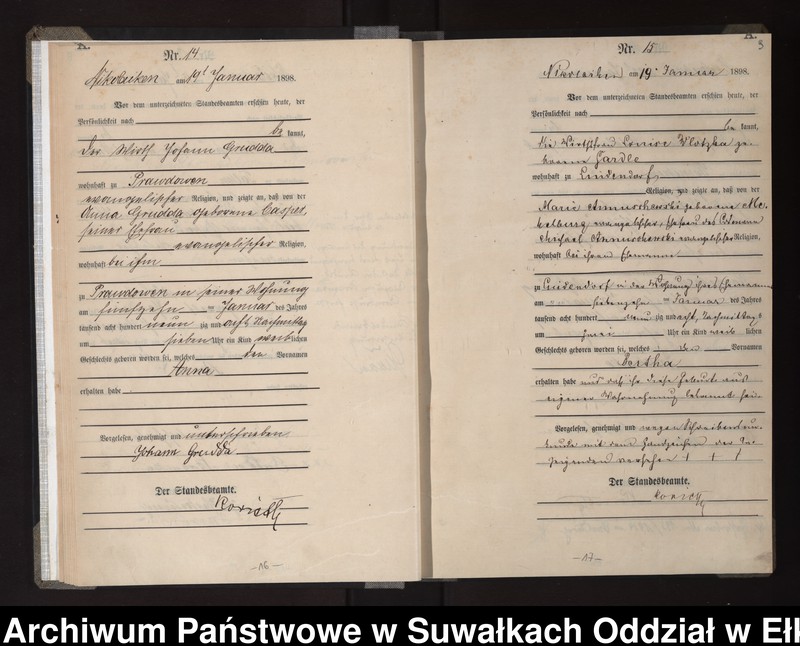 A.
Nr. 14
Nikolaiken am 19t Januar 1898.
Vor dem unterzeichneten Standesbeamten erschien heute, der
Persönlichkeit nach
be kannt,
der Wirth Johann Grudda
wohnhaft zu Prawdowen
evangelischer Religion, und zeigte an, daß von der
Anna Grudda geborene Casper,
seiner Ehefrau
evangelischer Religion,
wohnhaft bei ihm
zu Prawdowen in seiner Wohnung
am fünfzehn = Januar des Jahres
tausend acht hundert neun zig und acht Nachmittag
um sieben Uhr ein Kind weiblichen
Geschlechts geboren worden sei, welches den Vornamen
Anna
erhalten habe
Vorgelesen, genehmigt und unterschrieben
Johann Grudda
Der Standesbeamte.
-16-
A.
5
Nr. 15
am 19. Januar 1898.
Vor dem unterzeichneten Standesbeamten erschien heute, der
Persönlichkeit nach
be kannt,
die Wirthsfrau Louise ge-
borene
wohnhaft zu Lindendorf,
Religion, und zeigte an, daß von der
Marie geborene
evangelischer, Ehefrau des
Michael evangelischer Religion,
wohnhaft bei ihrem Ehemanne
zu Lindendorf in der Wohnung ihres Ehemannes
am siebenzehn = Januar des Jahres
tausend acht hundert neun zig und acht, Nachmittags
um zwei Uhr ein Kind weib lichen
Geschlechts geboren worden sei, welches den Vornamen
erhalten habe und daß ihr diese Geburt aus
eigener Wahrnehmung bekannt sei.
Vorgelesen, genehmigt und wegen Schreibensun-
kunde mit dem Handzeichen der An-
zeigenden versehen + + +
Der Standesbeamte.
-17-
Archiwum Państwowe w Suwałkach Oddział w Ełk